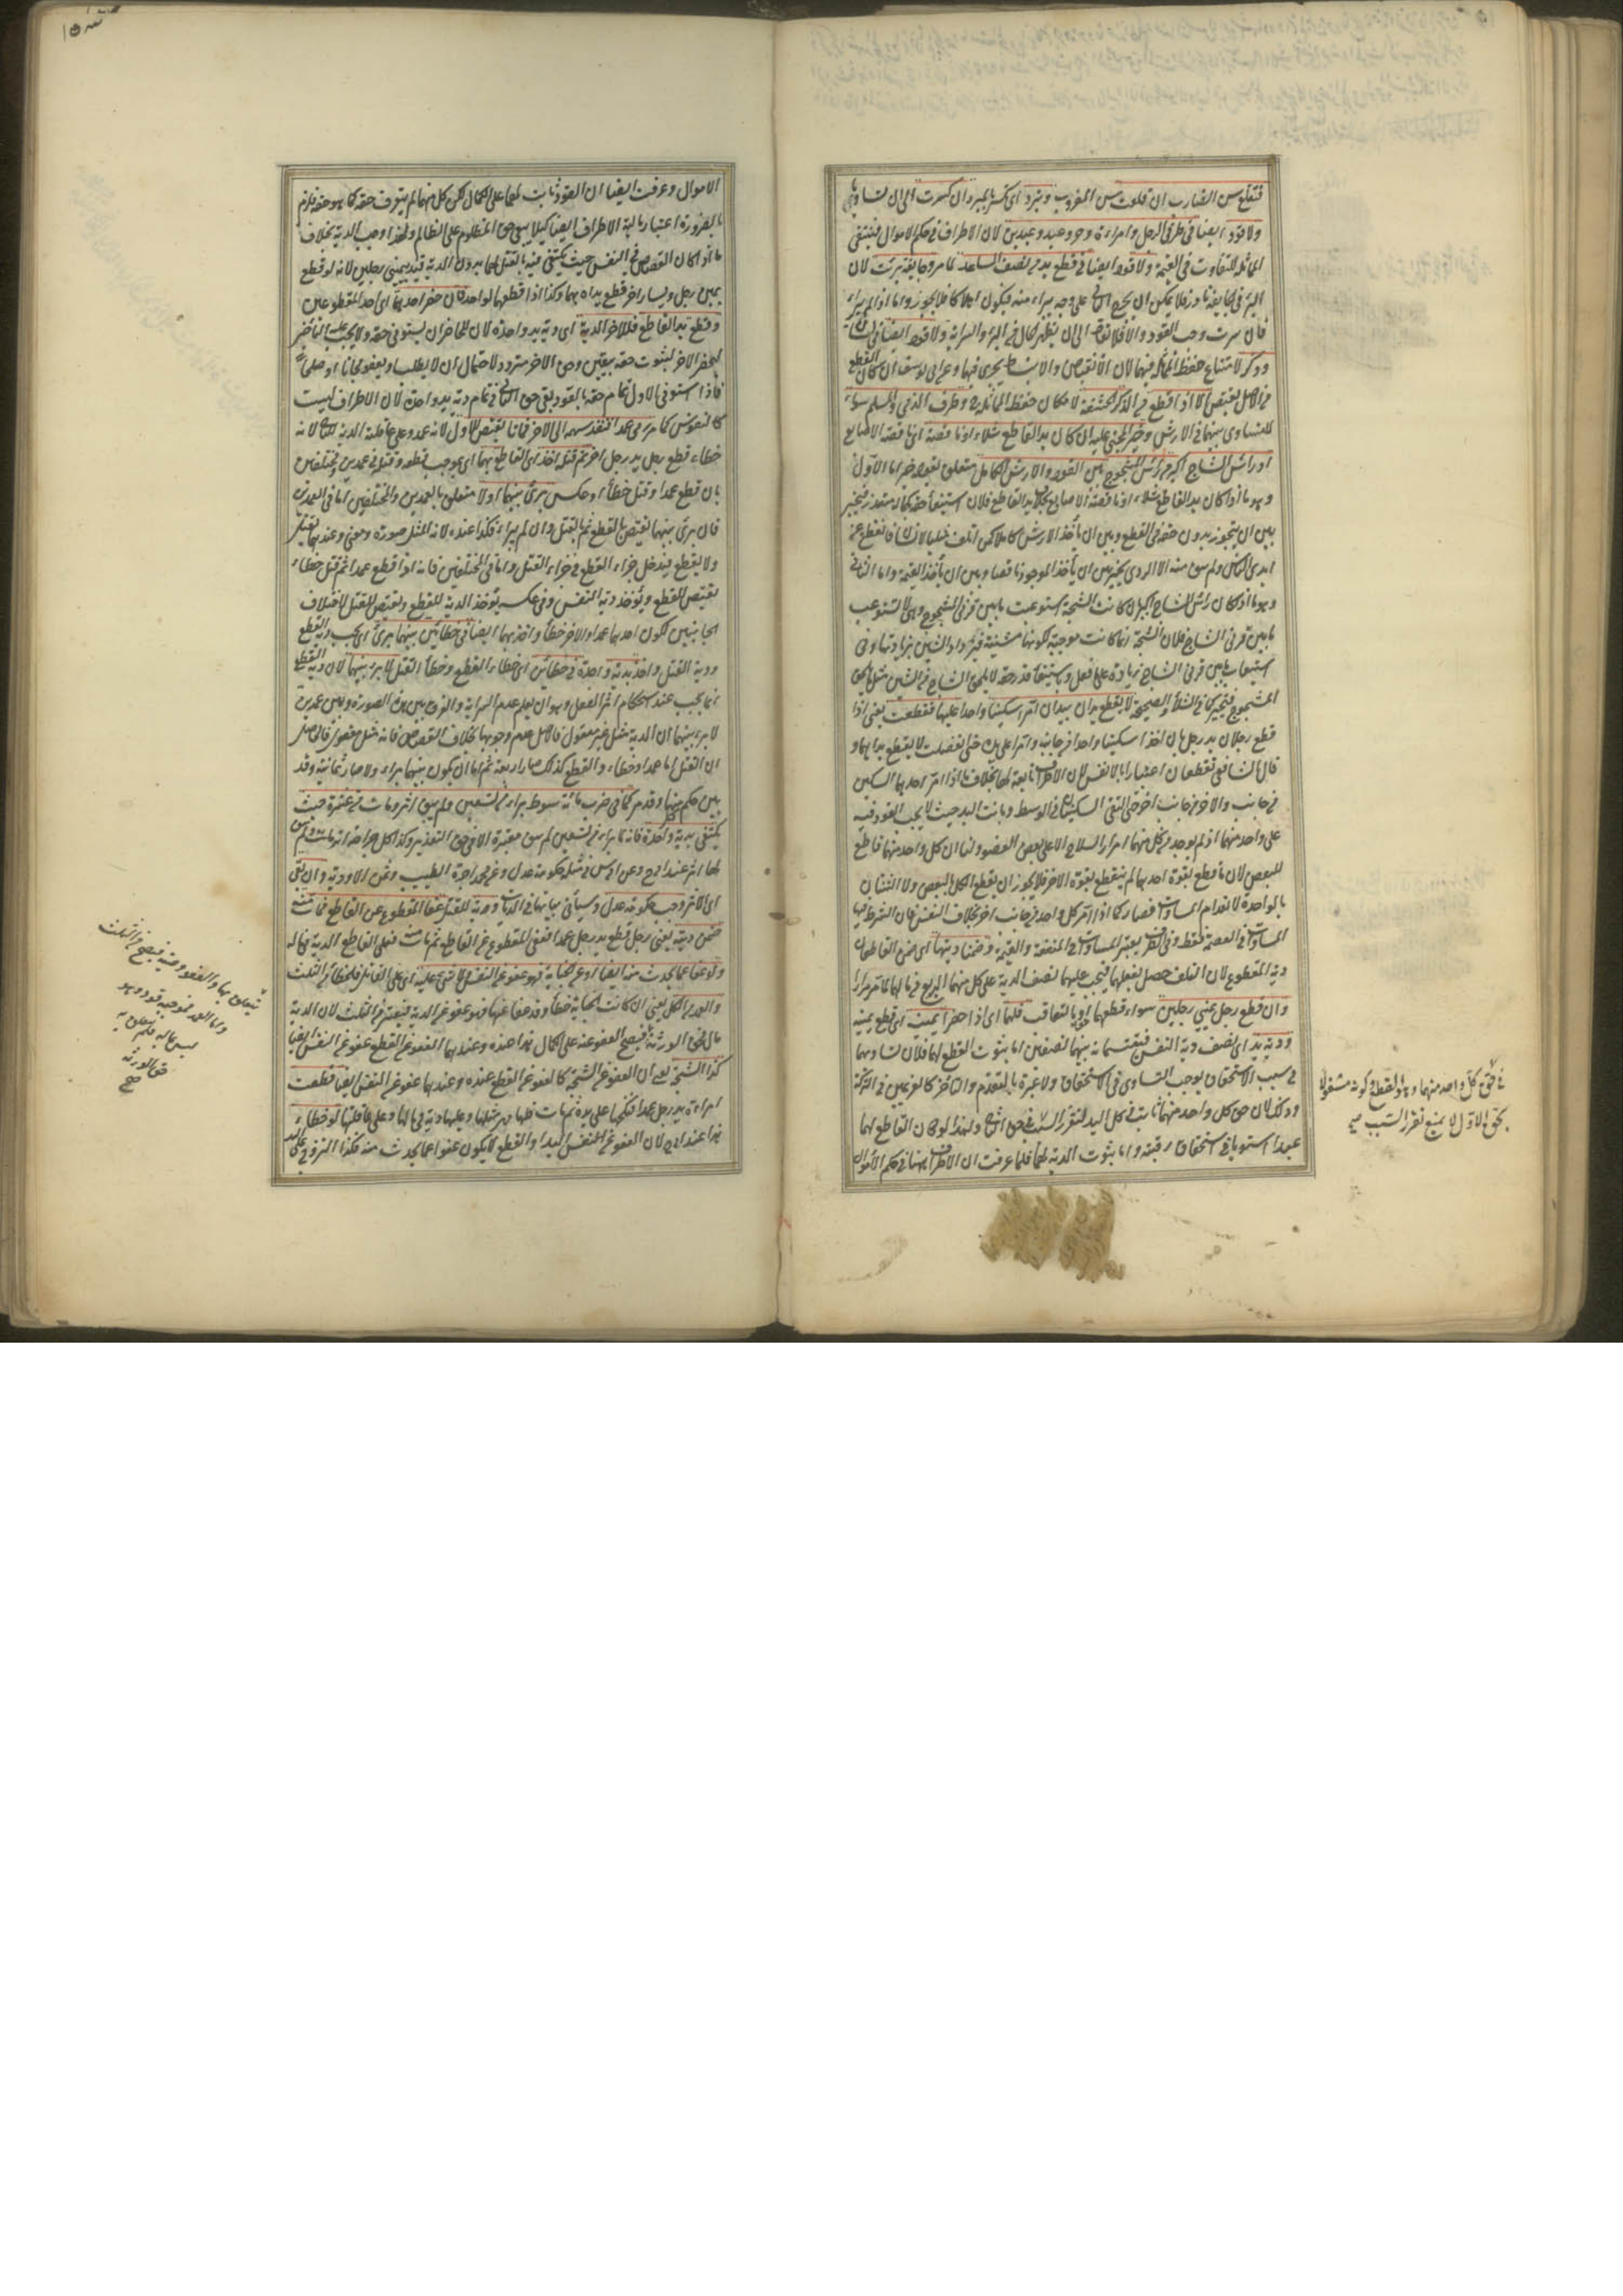 فتقلع سن الضارب ان قلعت سن المضروب وتبرد اى تكسر بالمبرد ان كسرت الى ان تساويا
ولا قود ايضا فى طرفى الرجل وامراءة وحر وعبد وعبدين لان الاطراف فى حكم الاموال فينتفى
المماثلة للتفاوت فى القيمة ولا قود ايضا فى قطع يد من نصف الساعد لما مر وجائفة برئت لان
البرء فى الجائفة نادر فلا يمكن ان يجرح الثانى على وجه يبراء منه فيكون اهلاكا فلا يجوز واما اذا لم يبراء
فان سرت وجب القود والا فلا يقاد الى ان يظهر الحال فى البرء والسراية ولا قود ايضا فى لسان
وذكر لامتناع حفظ المماثلة فيهما لان الانقباض والانبساط يجرى فيهما وعن ابى يوسف ان كان القطع
من الاصل يقتص الا اذا قطع من الذكر الحشفة لامكان حفظ المماثلة ح وطرف الذمى والمسلم سواء
للتساوى بينهما فى الارش وخير المجنى عليه ان كان يد القاطع شلاء او ناقصة اى ناقصة الاصابع
او راس الشاج اكبر من راس المشجوج بين القود والارش الكامل متعلق بقوله خير اما الاول
وهو ما اذا كان يد القاطع شلاء او ناقصة الاصابع بخلاف يد القاطع فلان استيفاء حقه بكماله متعذر فيخير
بين ان يتجوز بدون حقه فى القطع وبين ان يأخذ الارش كاملا كمن اتلف مثليا لانسان فانقطع عن
ايدى الناس ولم يبق منه الا الردى يخير بين ان يأخذ الموجود ناقصا وبين ان يأخذ القيمة واما الثانى
وهو ما اذا كان راس الشاج اكبر كانت الشجة استوعبت ما بين قرنى المشجوج وهى لا تستوعب
ما بين قرنى الشاج فلان الشجة انما كانت موجبة لكونها مشينة فيزداد الشين بزيادتها وفى
استيعاب ما بين قرنى الشاج زيادة على ما فعل وباستيفاء قدر حقه لا يلحق الشاج من الشين مثل ما يلحق
المشجوج فيتخير كما فى الشلاء والصحيحة لا يقطع يدان بيد ان امرا سكينا واحدا عليها فقطعت يعنى اذا
قطع رجلان يد رجل بان اخذا سكينا واحدا من جانب وامراه على يده حتى انفصلت لا يقطع يداهما و
قال الشافعى تقطعان اعتبارا بالانفس لان الاطراف تابعة لها بخلاف ما اذا امر احدهما السكين
من جانب والاخر من جانب اخر حتى التقى السكينان فى الوسط وبانت اليد حيث لا يجب القود فيه
على واحد منهما اذ لم يوجد من كل منهما امرار السلاح الا على بعض العضو ولنا ان كل واحد منهما قاطع
للبعض لان ما قطع بقوة احدهما لم ينقطع بقوة الاخر فلا يجوز ان يقطع الكل بالبعض ولا الثنتان
بالواحدة لانعدام المساواة فصار كما اذا امر كل واحد من جانب اخر بخلاف النفس فان الشرط فيها
المساواة فى العصمة فقط وفى الطرف يعتبر المساواة فى المنفعة والقيمة وضمنا ديتها اى ضمن القاطعان
دية المقطوع لان التلف حصل بفعلهما فيجب عليهما نصف الدية على كل منهما الربع فى مالهما لما مر مرارا
وان قطع رجل يمينى رجلين سواء قطعهما معا او بالتعاقب فلهما اى اذا حضرا يمينه اى قطع يمينه
ودية يد اى نصف دية النفس فيقتسمانه بينهما نصفين اما ثبوت القطع لهما فلان تساويهما
فى سبب الاستحقاق يوجب التساوى فى الاستحقاق ولا عبرة بالتقدم والتأخر كالغريمين فى التركة
وذلك لان حق كل واحد منهما ثابت فى كل اليد لتقرر السبب فى حق الثانى ولهذا لو كان القاطع لهما
عبدا استويا فى استحقاق رقبته واما ثبوت الدية لهما فلما عرفت ان الاطراف ههنا فى حكم الاموال
فى حق كل واحد منهما وهو القطع وكونه مشغولا
بحق الاول لا يمنع تقرر السبب صح
الاموال وعرفت ايضا ان القود ثابت لهما على الكمال لكن كل منهما لم يستوف حقه كما هو حقه فلزم
بالضرورة اعتبار مالية الاطراف ايضا كيلا يبقى حق المظلوم على الظالم ولهذا وجب الدية بخلاف
ما اذا كان القصاص فى النفس حيث يكتفى فيه بالقتل لهما بدون الدية قيد بيمينى رجلين لانه لو قطع
يمين رجل ويسار اخر قطع يداه بهما وكذا اذا قطعهما لواحد فان حضر احدهما اى احد المقطوعين
وقطع يد القاطع فللاخر الدية اى دية يد واحدة لان للحاضر ان يستوفى حقه ولا يجب عليه التأخير
ليحضر الاخر لثبوت حقه بيقين وحق الاخر متردد لاحتمال ان لا يطلب او يعفو مجانا او صلحا
فاذا استوفى الاول تمام حقه بالقود بقى حق الثانى فى تمام دية يد واحدة لان الاطراف ليست
كالنفوس كما مر رمى عمدا فنفذ سهمه الى الاخر فماتا يقتص للاول لانه عمد وعلى عاقلته الدية للثانى لانه
خطاء قطع رجل يد رجل اخر ثم قتله اخذ اى القاطع بهما اى بموجب قطعه وقتله فى عمدين ومختلفين
بان قطع عمدا وقتل خطأ او عكس برئ بينهما اولا متعلق بالعمدين والمختلفين اما فى العمدين
فان برئ بينهما يقتص بالقطع ثم بالقتل وان لم يبراء فكذا عنده لانه المثل صورة ومعنى وعندهما يقتل
ولا يقطع فيدخل جزاء القطع فى جزاء القتل واما فى المختلفين فانه اذا قطع عمدا ثم قتل خطاء
يقتص للقطع ويؤخذ دية النفس وفى عكسه يؤخذ الدية للقطع ويقتص للقتل لاختلاف
الجنايتين لكون احدهما عمدا والاخر خطأ واخذ بهما ايضا فى خطائين بينهما برئ اى يجب دية القطع
ودية القتل واخذ بدية واحدة فى خطائين اى خطاء القطع وخطأ القتل لا برء بينهما لان دية القطع
انما يجب عند استحكام اثر الفعل وهو ان يعلم عدم السراية والفرق بين هذه الصورة وبين عمدين
لا برء بينهما ان الدية مثل غير معقول فالاصل عدم وجوبها بخلاف القصاص فانه مثل معقول فالحاصل
ان القتل اما عمد او خطاء والقطع كذلك صار اربعة ثم اما ان يكون بينهما براء ولا صار ثمانية وقد
بين حكم كل منها وقد مر كما فى ضرب مائة سوط براء من تسعين ولم يبق اثر ومات من عشرة حيث
يكتفى بدية واحدة فانه لما براء من تسعين لم يبق معتبرة الا فى حق التعذير وكذا كل جراحة اندملت ولم يبق
لها اثر عند ابى ح وعن ابى س فى مثله حكومة عدل وعن محمد اجرة الطبيب وثمن الادوية وان بقى
اى الاثر وجب حكومة عدل وسيأتى بيانها فى الديات ودية للقتل عفا المقطوع عن القاطع فمات منه
ضمن ديته يعنى رجل قطع يد رجل عمدا فعفى المقطوع عن القاطع ثم مات منه فعلى القاطع الدية فى ماله
ولو عفا عما يحدث منه ايضا او عن الجناية فهو عفو عن النفس فلا شئ عليه اى على القاتل فالخطاء من الثلث
والعمد من الكل يعنى ان كانت الجناية خطأ وقد عفا عنها فهو عفو عن الدية فيعتبر من الثلث لان الدية
مال فحق الورثة فيصح العفو عنه على الكمال هذا عنده وعندهما العفو عن القطع عفو عن النفس ايضا
كذا الشجة يعنى ان العفو عن الشجة كالعفو عن القطع عنده وعندهما عفو عن النفس ايضا قطعت
امراءة يد رجل عمدا فنكحها على يده ثم مات فلها مهر مثلها وعليها دية فى مالها وعلى عاقلتها لو خطاء
هذا عند ابى ح لان العفو عن النفس اليد او القطع لا يكون عفوا عما يحدث منه فكذا التزوج على اليد
يتعلق بها والعفو وصية فيصح من الثلث
واما العمد فموجبه قود وهو
ليس بمال فلم يتعلق به
حق الورثة
صح